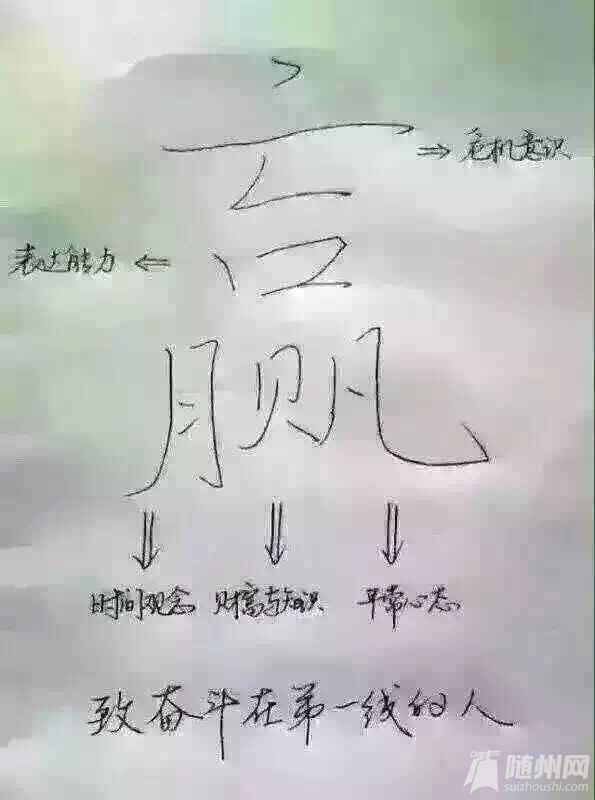 赢
危机意识
表达能力
时间观念 财富与知识 平常心态
致奋斗在第一线的人
随州网
suizhoushi.com